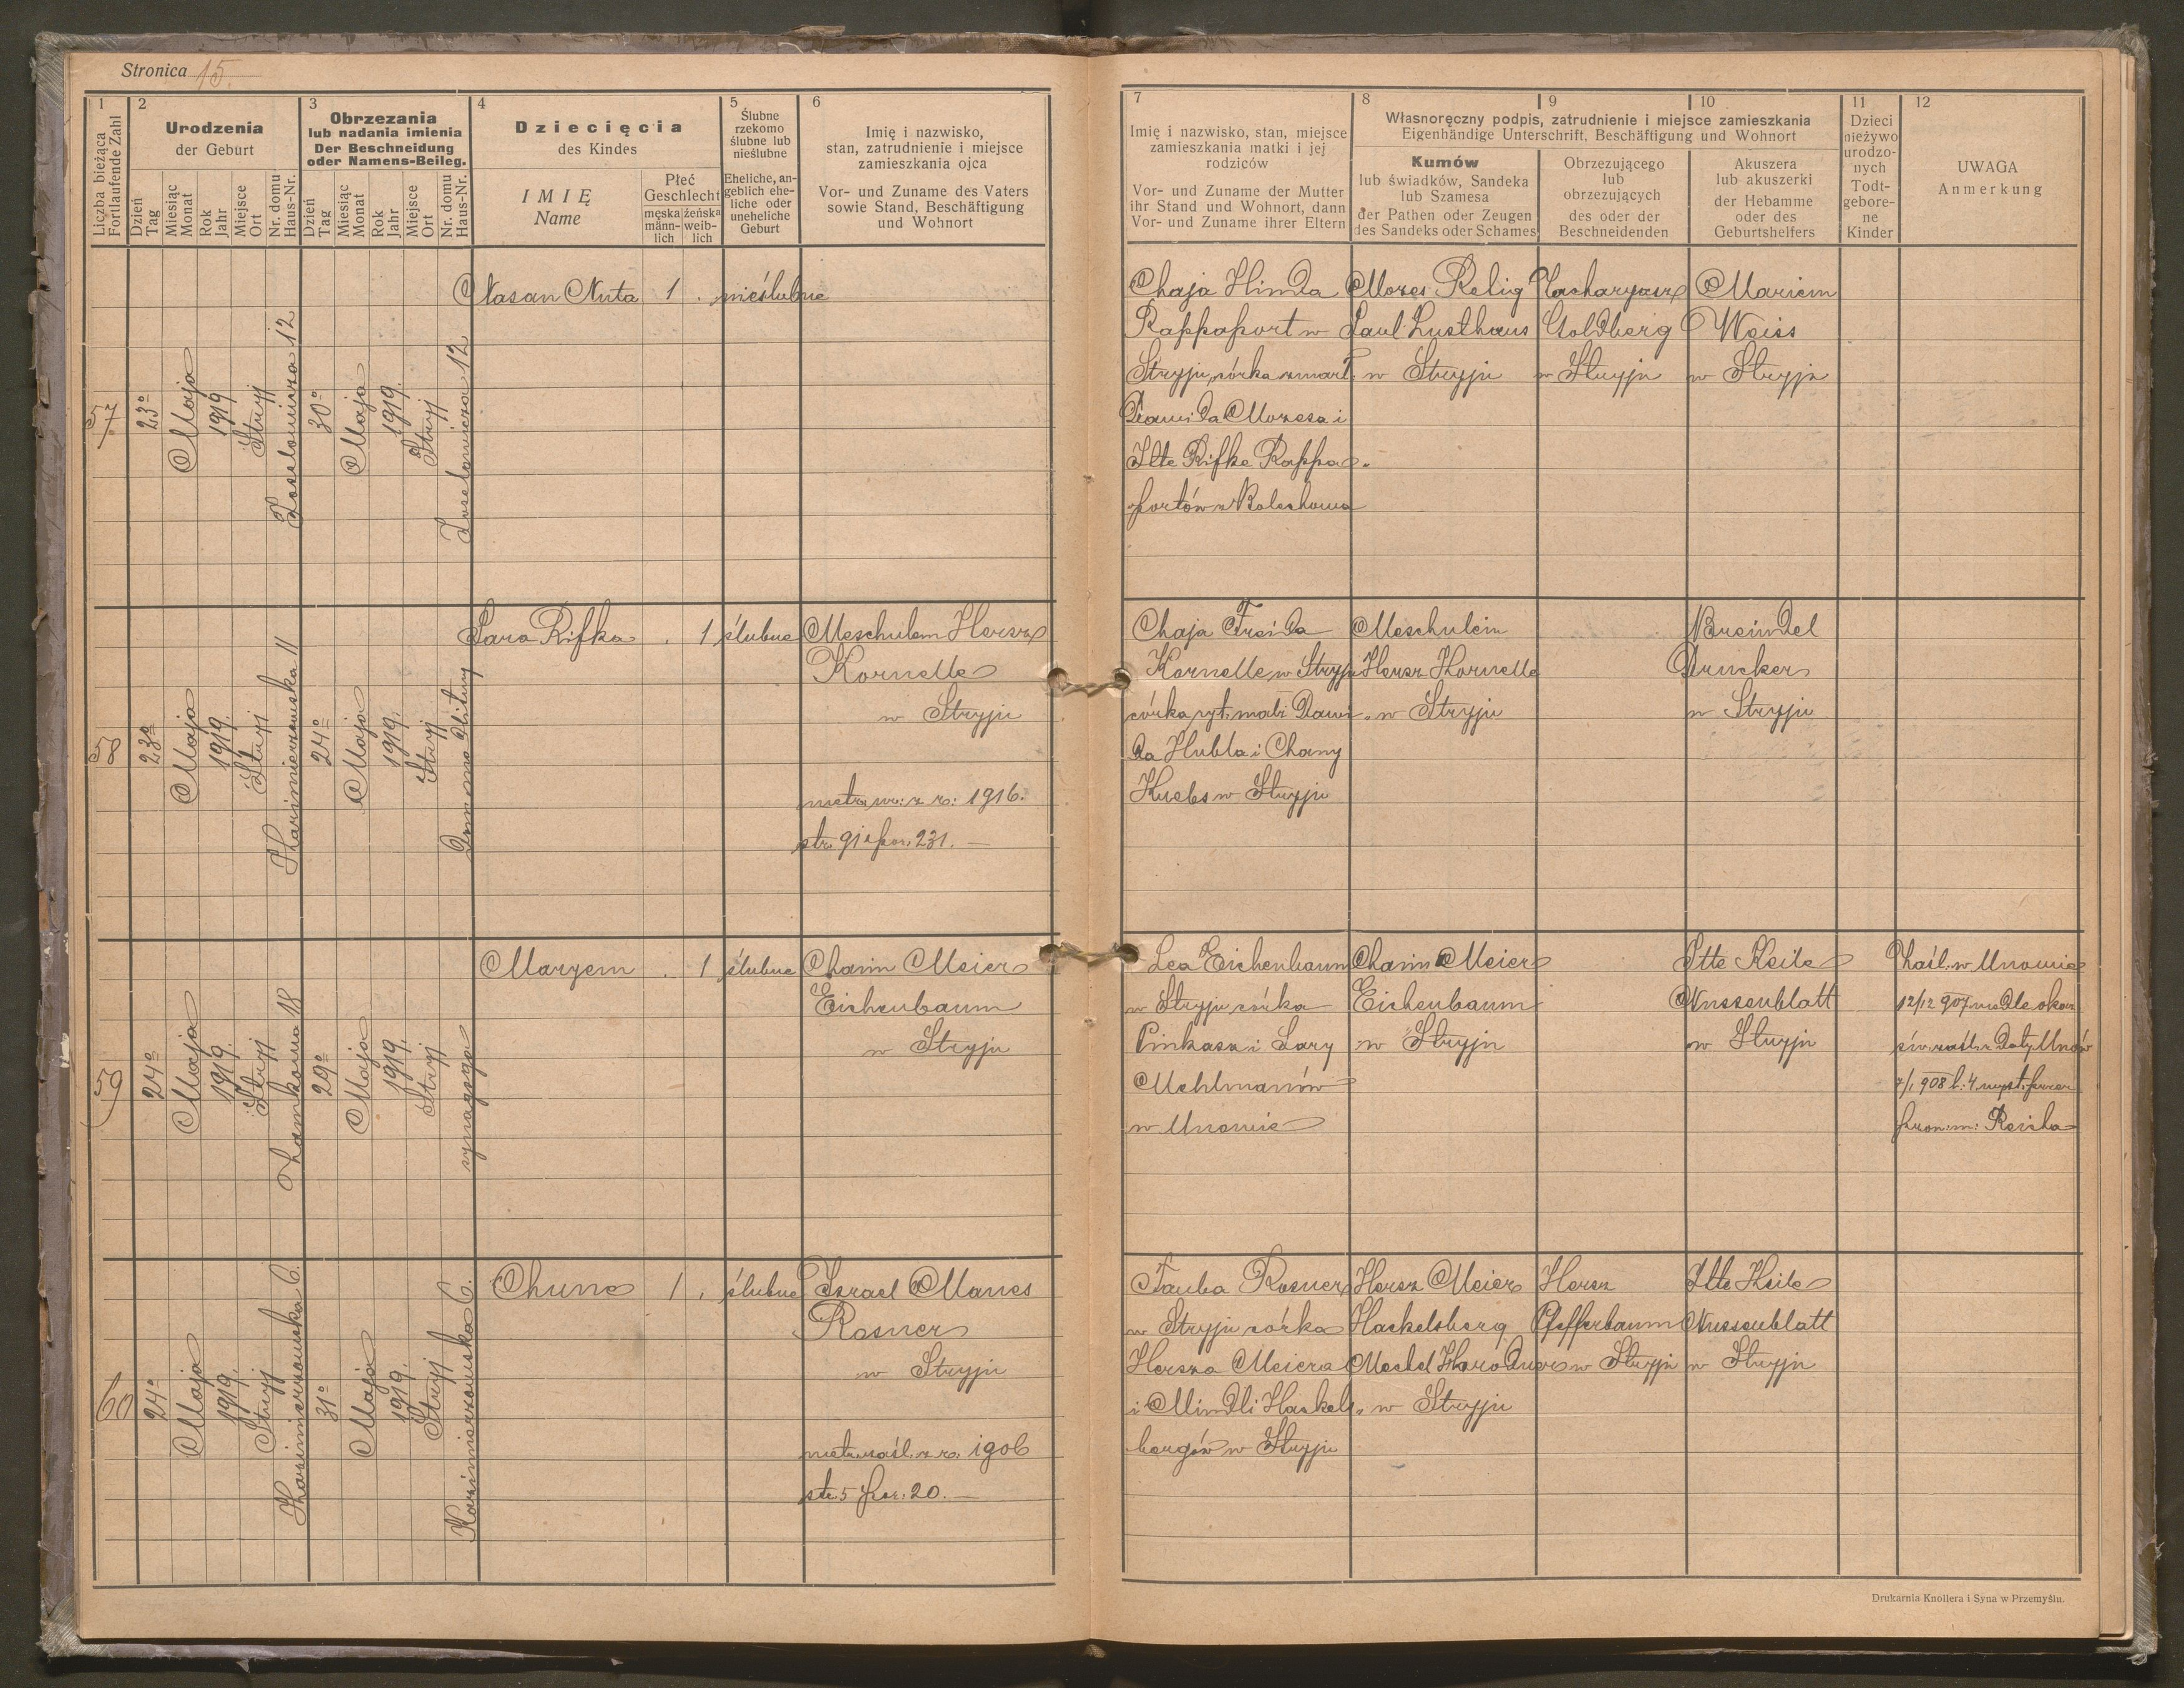 Stronica 15.
1
2
3
4
5
6
Liczba bieżąca
Fortlaufende Zahl
Urodzenia
der Geburt
Obrzezania
lub nadania imienia
Der Beschneidung
oder Namens-Beileg.
Dziecięcia
des Kindes
Ślubne
rzekomo
ślubne lub
nieślubne
Eheliche, an-
geblich ehe-
liche oder
uneheliche
Geburt
Imię i nazwisko,
stan, zatrudnienie i miejsce
zamieszkania ojca
Vor- und Zuname des Vaters
sowie Stand, Beschäftigung
und Wohnort
Dzień
Tag
Miesiąc
Monat
Rok
Jahr
Miejsce
Ort
Nr. domu
Haus-Nr.
Dzień
Tag
Miesiąc
Monat
Rok
Jahr
Miejsce
Ort
Nr. domu
Haus-Nr.
IMIĘ
Name
Płeć
Geschlecht
męska
männ-
lich
żeńska
weib-
lich
7
8
9
10
11
12
Imię i nazwisko, stan, miejsce
zamieszkania matki i jej
rodziców
Vor- und Zuname der Mutter
ihr Stand und Wohnort, dann
Vor- und Zuname ihrer Eltern
Własnoręczny podpis, zatrudnienie i miejsce zamieszkania
Eigenhändige Unterschrift, Beschäftigung und Wohnort
Kumów
lub świadków, Sandeka
lub Szamesa
der Pathen oder Zeugen
des Sandeks oder Schames
Obrzezującego
lub
obrzezujących
des oder der
Beschneidenden
Akuszera
lub akuszerki
der Hebamme
oder des
Geburtshelfers
Dzieci
nieżywo
urodzo-
nych
Todt-
gebore-
ne
Kinder
UWAGA
Anmerkung
57
23º
Maja
1919
Stryj
Joselowicza 12
30º
Maja
1919.
Stryj
Joselowicza 12
Nasan Nuta
1
.
nieślubne
Chaja Hinda
Rappaport w
Stryju, córka zmarł.
Dawida Mozesa i
Itte Rifke Rappa-
portów z Bolechowa
Mozes Relig
Saul Lusthaus
w Stryju
Zacharyasz
Goldberg
w Stryju
Mariem
Weiss
w Stryju
58
23º
Maja
1919.
Stryj
Kazimierzowska 11
24º
Maja
1919.
Stryj
Dom modlitwy
Sara Rifka
.
1
ślubne
Meschulem Hersz
Kornelle
w Stryju
metr. z r: 1916.
str. 91 poz. 231.
Chaja Freida
Kornelle w Stryju
córka ryt. małż Dawi-
da Hubla i Chany
Krebs w Stryju
Meschulem
Hersz Kornelle
w Stryju
Breindel
Drucker
w Stryju
59
24º
Maja
1919.
Stryj
Zamkowa 18
29º
Maja
1919.
Stryj
synagoga
Maryem
.
1
ślubne
Chaim Meier
Eichenbaum
w Stryju
Lea Eichenbaum
w Stryju córka
Pinkasa i Sary
Mehlmanów
w Uhnowie
Chaim Meier
Eichenbaum
w Stryju
Itte Keile
Nussenblatt
w Stryju
Zaśl. w Uhnowie
12/12 907 wedle okaz
św. zaśl. z daty Uhnów
7/1 908 l: 4 wyst. przez
prow. m: Reicha
60
24º
Maja
1919.
Stryj
Kazimierzowska 6.
31º
Maja
1919.
Stryj
Kazimierzowska 6.
Chune
1
.
ślubne
Izrael Manes
Rosner
w Stryju
metr. zaśl. z r: 1906
str. 5 poz. 20.
Tauba Rosner
w Stryju córka
Hersza Meiera
i Mindli Haskels-
bergów w Stryju
Hersz Meier
Haskelsberg
Mechel Horodner
w Stryju
Hersz
Pfefferbaum
w Stryju
Itte Keile
Nussenblatt
w Stryju
Drukarnia Knollera i Syna w Przemyślu.